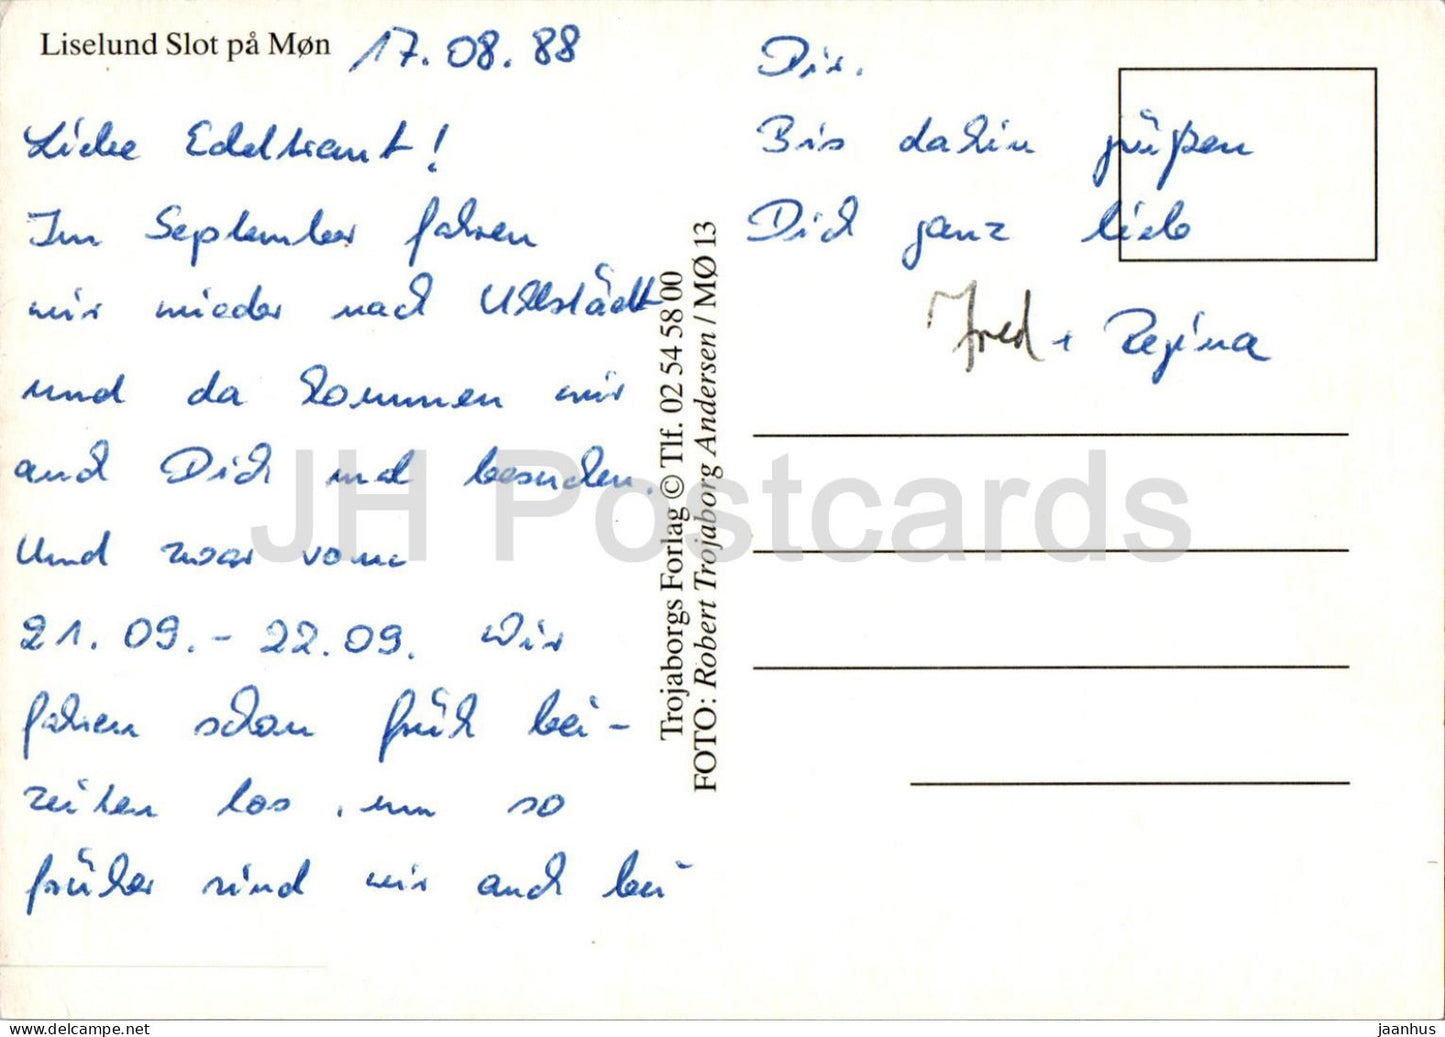 Liselund Slot på Møn
17.08.88
Liebe Edeltraut!
Im September fahren
wir wieder nach Ullstädt
und da kommen wir
auch Dich mal besuchen.
Und zwar vom
21.09.-22.09. Wir
fahren schon früh bei-
zeiten los, um so
früher sind wir auch bei
Dir.
Bis dahin grüßen
Dich ganz lieb
Fred + Regina
Trojaborgs Forlag © Tlf. 02 54 58 00
FOTO: Robert Trojaborg Andersen / MØ 13
JH Postcards
delcampe.net
jaanhus